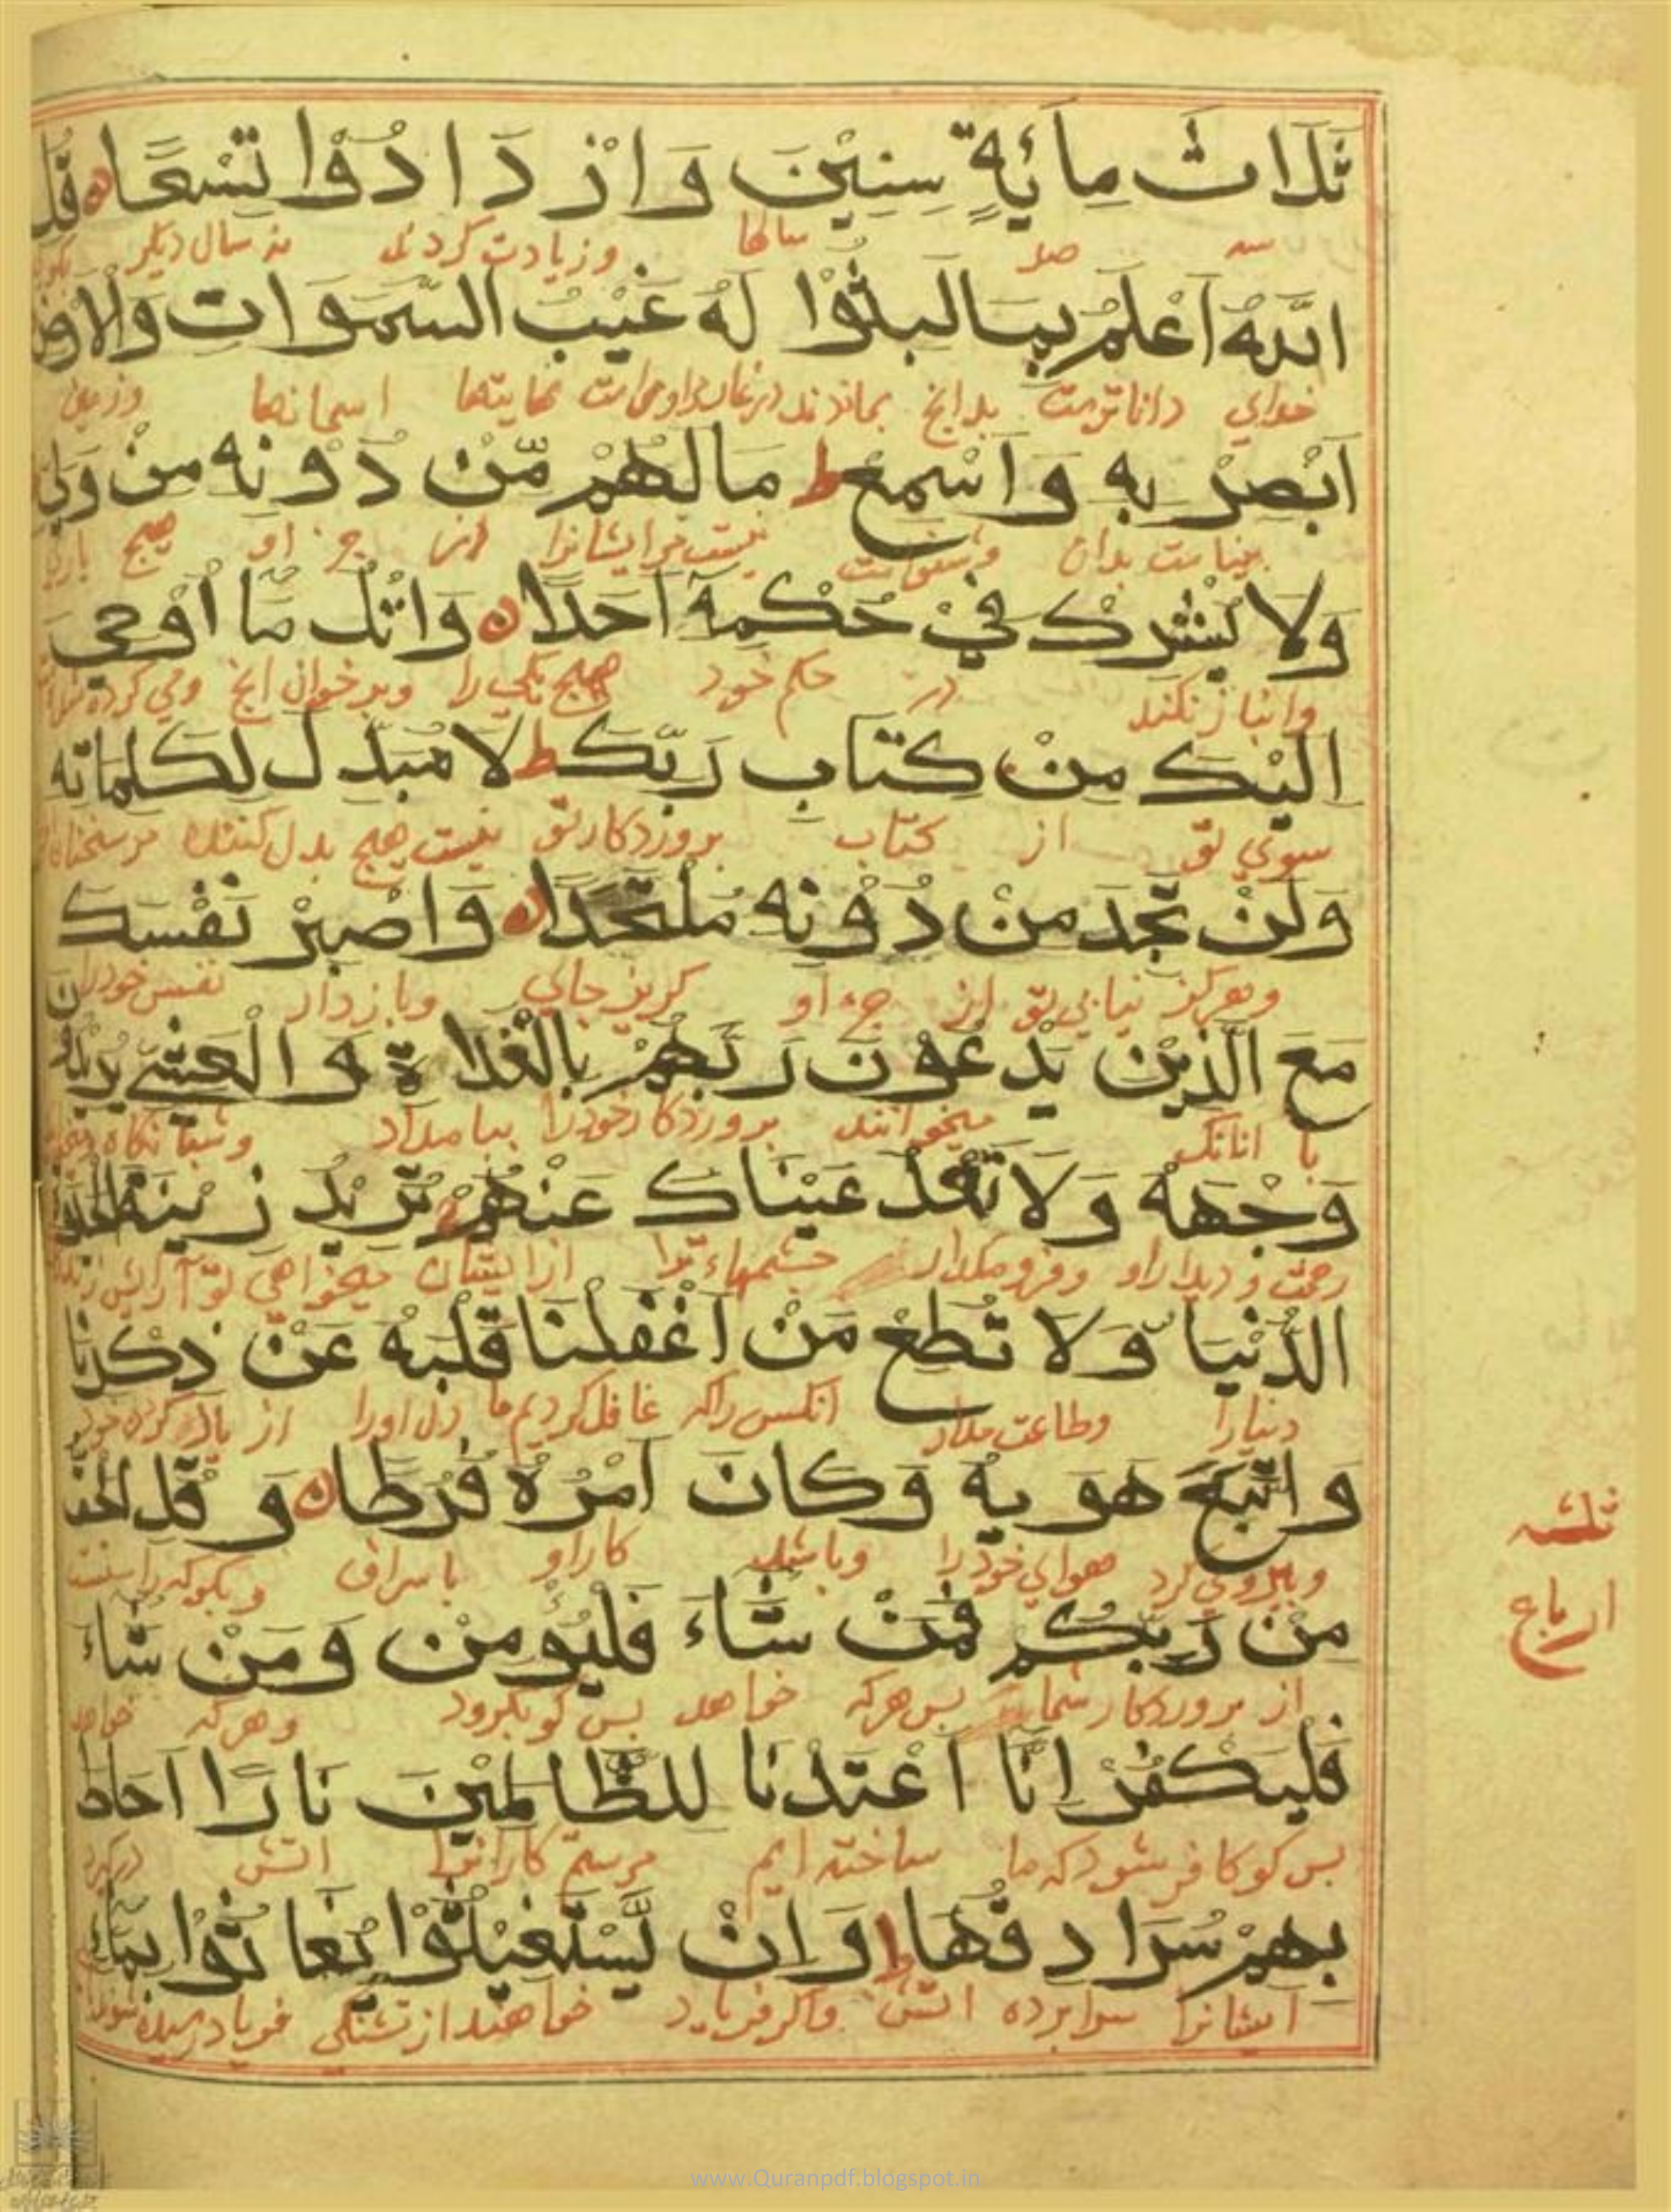 ثَلَاثَ مِائَةٍ سِنِيْنَ وَازْدَادُوْا تِسْعًا قُلِ
سه صد سالها و زیادت کردند نه سال دیگر
اللّٰهُ اَعْلَمُ بِمَا لَبِثُوْا لَهٗ غَيْبُ السَّمٰوَاتِ وَالْاَرْضِ
خدای داناترست بدانچ بماندند اسمانها وزمین
اَبْصِرْ بِهٖ وَاَسْمِعْ ط مَا لَهُمْ مِّنْ دُوْنِهٖ مِنْ وَلِيٍّ
بیناست بدان وشنواست نیست مرایشانرا از جز او هیچ
وَلَا يُشْرِكُ فِيْ حُكْمِهٖٓ اَحَدًا وَاتْلُ مَا اُوْحِيَ
وانباز نکند در حکم خود هیچ یکی را وبرخوان انچ وحی کرده
اِلَيْكَ مِنْ كِتَابِ رَبِّكَ ط لَا مُبَدِّلَ لِكَلِمَاتِهٖ
سوی تو از کتاب پروردکار تو نیست هیچ بدل کننده مر سخنان
وَلَنْ تَجِدَ مِنْ دُوْنِهٖ مُلْتَحَدًا وَاصْبِرْ نَفْسَكَ
وهرکز نیابی تو از جز او کریز جای وباز دار نفس خودرا
مَعَ الَّذِيْنَ يَدْعُوْنَ رَبَّهُمْ بِالْغَدَاةِ وَالْعَشِيِّ يُرِيْدُوْنَ
با انانکه میخوانند پروردکار خودرا ببامداد وشبانکاه
وَجْهَهٗ وَلَا تَعْدُ عَيْنَاكَ عَنْهُمْ تُرِيْدُ زِيْنَةَ الْحَيٰوةِ
ودیدار او وفرو مکذار چشمهاء ترا از ایشان میخواهی تو آرایش
الدُّنْيَا وَلَا تُطِعْ مَنْ اَغْفَلْنَا قَلْبَهٗ عَنْ ذِكْرِنَا
دنیارا وطاعت مدار انکس راکه غافل کردیم ما دل اورا از یاد کردن خود
وَاتَّبَعَ هَوٰيهُ وَكَانَ اَمْرُهٗ فُرُطًا وَقُلِ الْحَقُّ
وپیروی کرد هوای خودرا وباشد کار او باسراف وبکو که راست
مِنْ رَبِّكُمْ فَمَنْ شَاءَ فَلْيُؤْمِنْ وَمَنْ شَاءَ
از پروردکار شماست پس هرکه خواهد پس کو بکرود وهرکه خواهد
فَلْيَكْفُرْ اِنَّا اَعْتَدْنَا لِلظَّالِمِيْنَ نَارًا اَحَاطَ
پس کو کافر شود که ما ساخته ایم مر ستم کارانرا اتش
بِهِمْ سُرَادِقُهَا ط وَاِنْ يَّسْتَغِيْثُوْا يُغَاثُوْا بِمَاءٍ
ایشانرا سرابرده اتش واکر فریاد خواهند از تشنکی فریاد رسیده شوند
ثلثه
ارباع
www.Quranpdf.blogspot.in